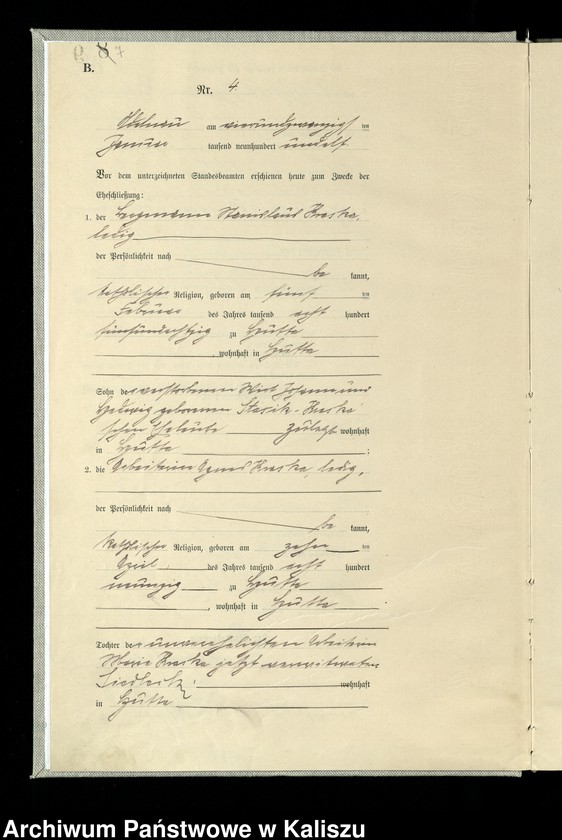 8
B.
Nr. 4
Adelnau am vierundzwanzigs ten
Januar tausend neunhundert undelf
Vor dem unterzeichneten Standesbeamten erschienen heute zum Zwecke der
Eheschließung:
1. der Stanislaus Kraska,
ledig
der Persönlichkeit nach
be kannt,
katholischer Religion, geboren am fünf ten
Februar des Jahres tausend acht hundert
fünfundachtzig zu Hutta
, wohnhaft in Hutta
Sohn der verstorbenen Wirt Johann und
Hedwig geborenen Stasik-Kraska
schen Eheleute zuletzt wohnhaft
in Hutta ;
2. die Arbeiterin Agnes Kraska, ledig,
der Persönlichkeit nach
be kannt,
katholischer Religion, geboren am zehn ten
April des Jahres tausend acht hundert
neunzig zu Hutta
, wohnhaft in Hutta
Tochter der unverehelichten Arbeiterin
Marie Kraska jetzt verwitweten
wohnhaft
in Hutta
Archiwum Państwowe w Kaliszu